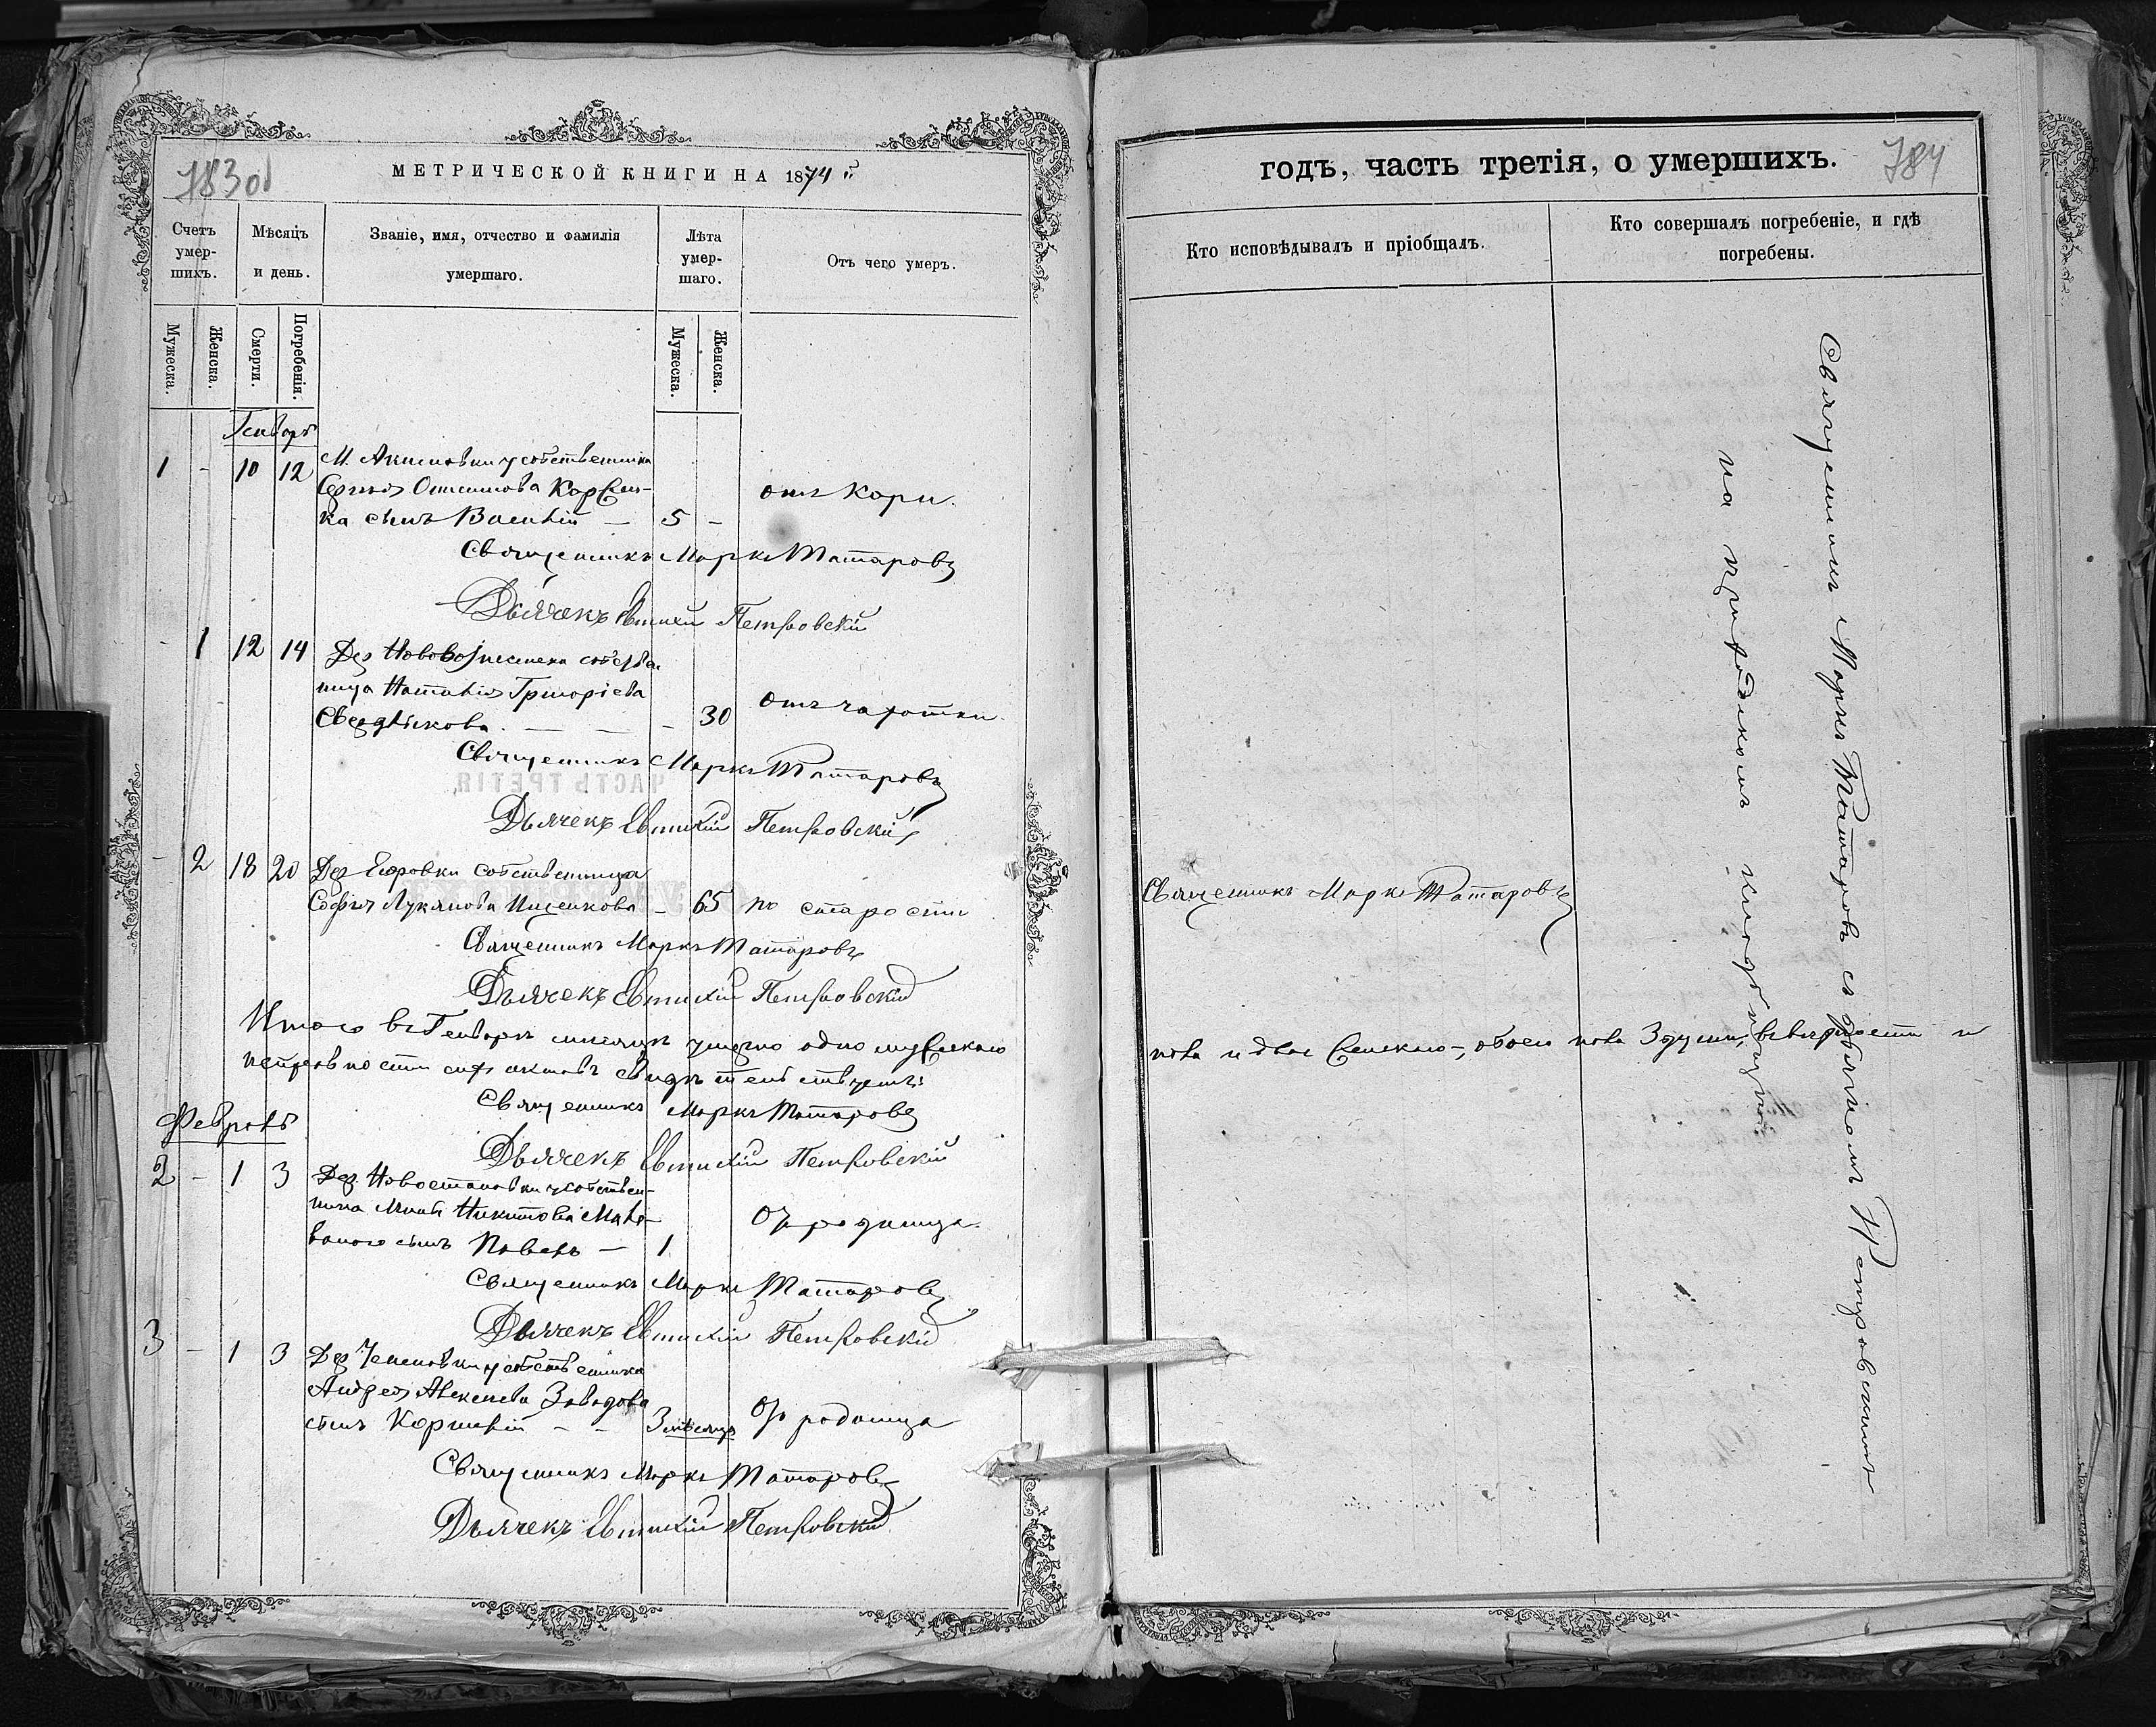 783об
МЕТРИЧЕСКОЙ КНИГИ НА 1874й
Счетъ умер-шихъ.
Мѣсяцъ и день.
Званіе, имя, отчество и фамилія умершаго.
Лѣта умер-шаго.
Отъ чего умеръ.
Мужеска.
Женска.
Смерти.
Погребенія.
Мужеска.
Женска.
Генварь
1 - 10 12 М. Акимовки собственника
Сергія
ка сынъ Василій — 5 - отъ кори.
Священникъ Маркъ Татаровъ
Дьячекъ Евтихій Петровскій
- 1 12 14 Дер. Нововознесенки
ница Наталія Григоріева
— — - 30 отъ чахотки
Священникъ Маркъ Татаровъ
Дьячекъ Евтихій Петровскій
- 2 18 20 Дер. Егоровки собственница
Софія Лукянова Ищенкова - 65 по старости
Священникъ Маркъ Татаровъ
Дьячекъ Евтихій Петровскій
Итого въ Генварѣ мѣсяцѣ умерло одно мужескаго
свидѣтельствуемъ:
Священникъ Маркъ Татаровъ
Дьячекъ Евтихій Петровскій
Февраль
2 - 1 3 Дер. Новостановки собствен-
ника Никитова
сынъ Павелъ — 1 Отъ родимца.
Священникъ Маркъ Татаровъ
Дьячекъ Евтихій Петровскій
3 - 1 3 Дер. собственника
Андрея Алексѣева Заводова
сынъ Корнилій - - 3 мѣсяца Отъ родимца
Священникъ Маркъ Татаровъ
Дьячекъ Евтихій Петровскій
784
годъ, часть третія, о умершихъ.
Кто исповѣдывалъ и пріобщалъ.
Кто совершалъ погребеніе, и гдѣ погребены.
Священникъ Маркъ Татаровъ
пола и двое женскаго -, обоего пола 3 души, въ вѣрности и
Священникъ Маркъ Татаровъ съ дьячкомъ Петровскимъ
на приходскомъ кладбищѣ